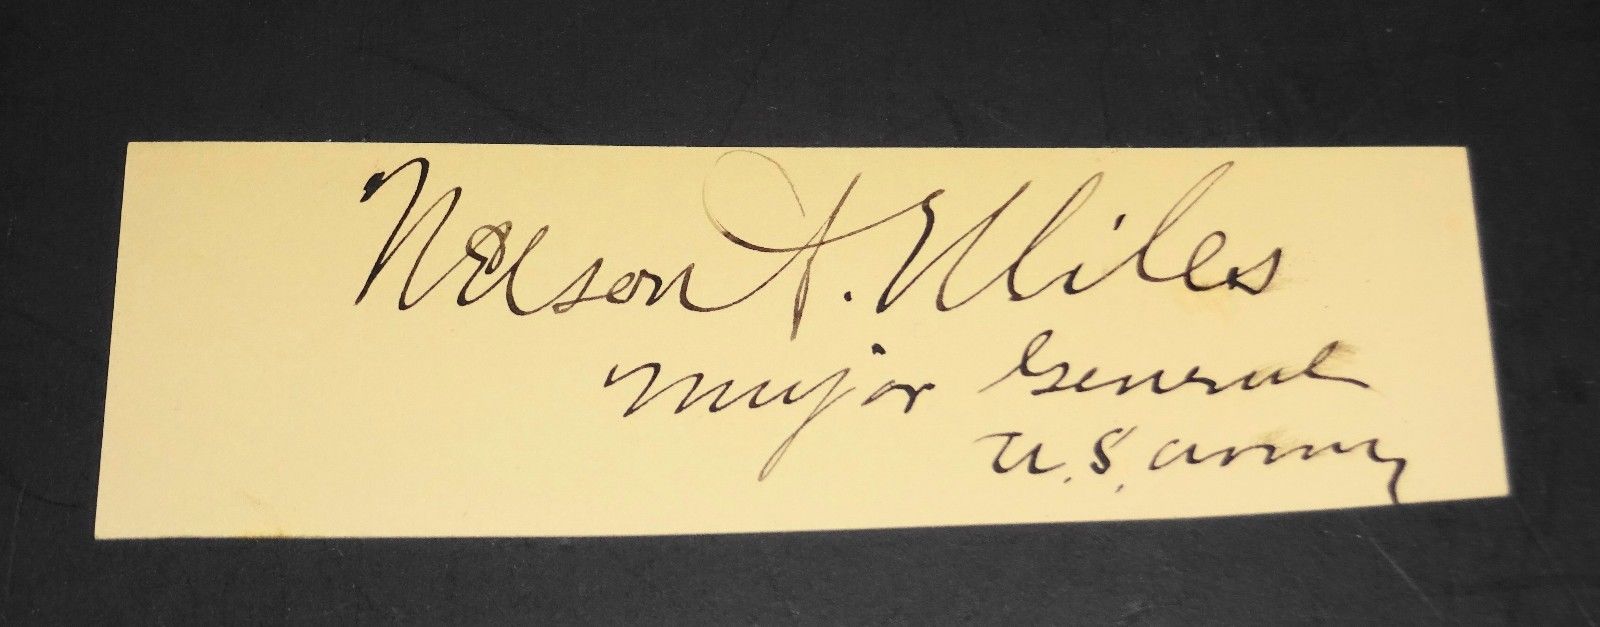 Nelson A. Miles
Major General
U.S. Army